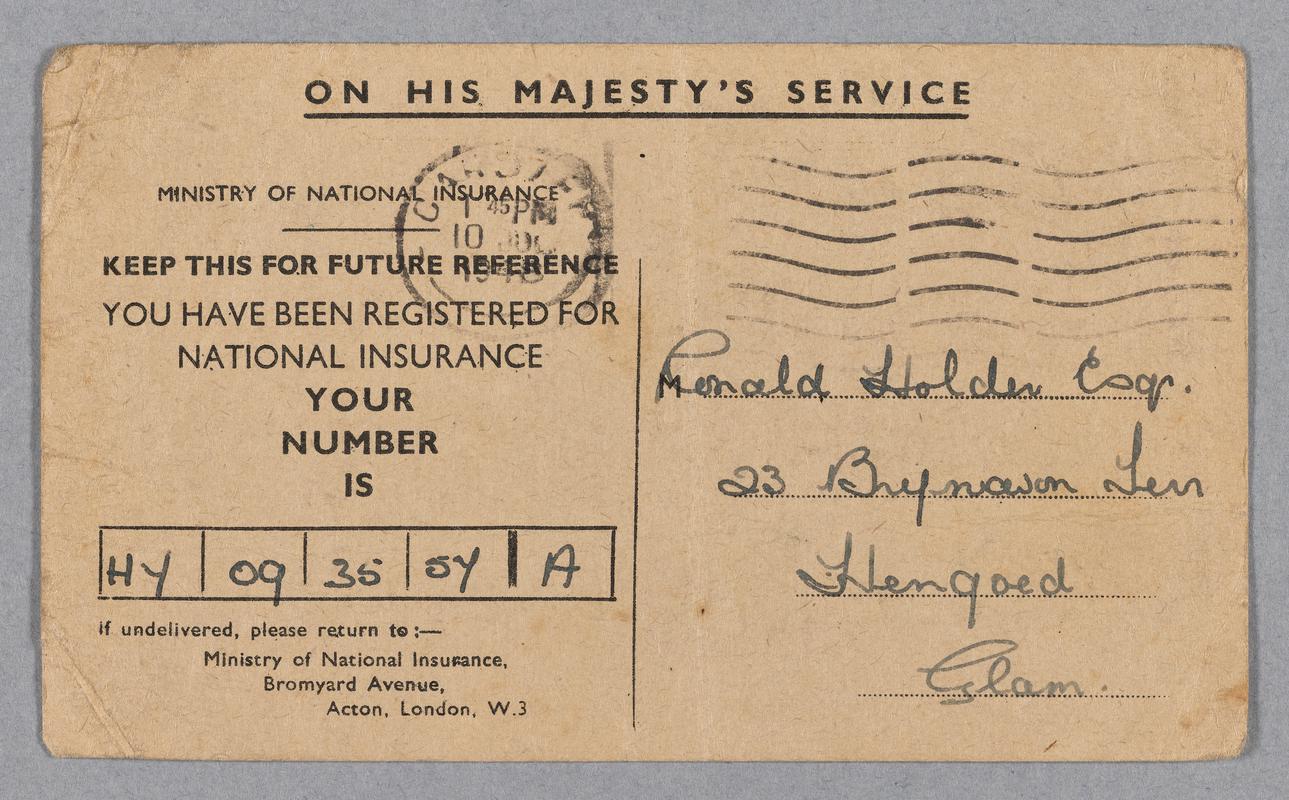 ON HIS MAJESTY'S SERVICE
MINISTRY OF NATIONAL INSURANCE
CARDIFF
1 45 PM
10 JUL
1948
KEEP THIS FOR FUTURE REFERENCE
YOU HAVE BEEN REGISTERED FOR
NATIONAL INSURANCE
YOUR
NUMBER
IS
HY 09 35 54 A
If undelivered, please return to :—
Ministry of National Insurance,
Bromyard Avenue,
Acton, London, W.3
M Ronald Holder Esq.
23 Brynavon Terr
Hengoed
Glam.